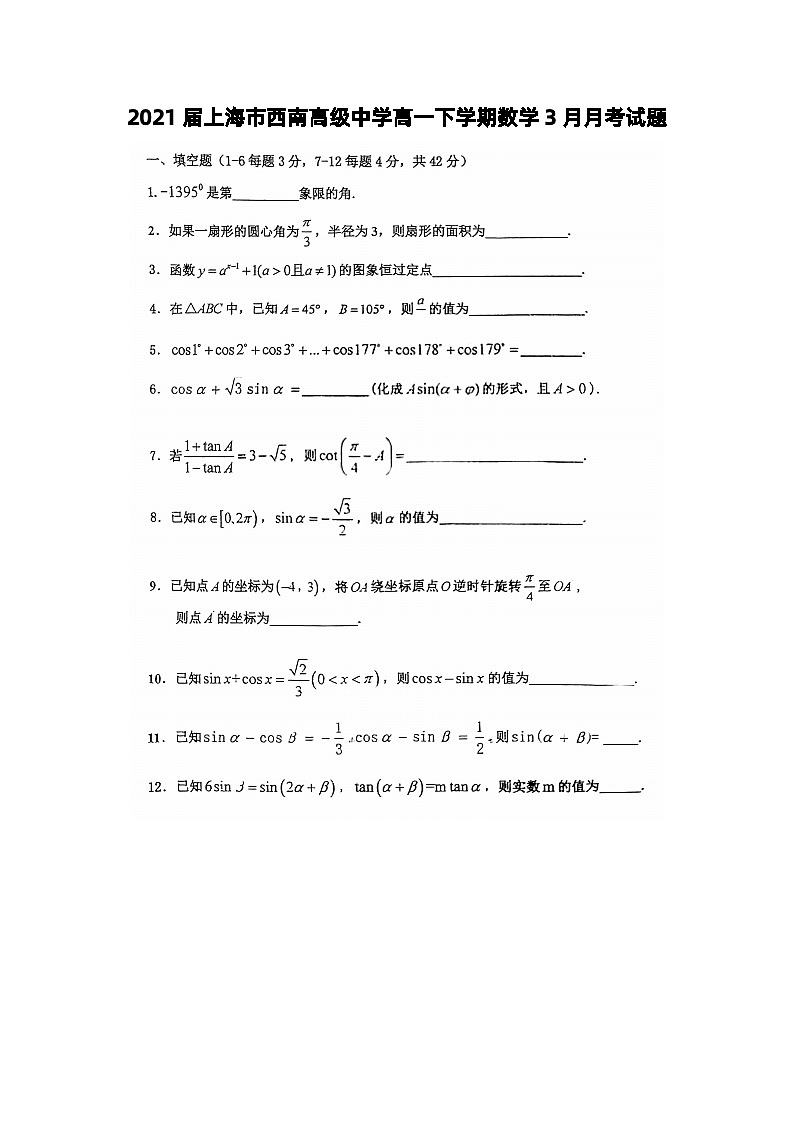 2021 届上海市西南高级中学高一下学期数学 3 月月考试题
一、填空题（1-6 每题 3 分，7-12 每题 4 分，共 42 分）
1. -1395⁰ 是第_________象限的角.
2. 如果一扇形的圆心角为 π/3，半径为 3，则扇形的面积为___________.
3. 函数 y = aˣ⁻¹ + 1(a > 0且a ≠ 1) 的图象恒过定点____________________.
4. 在 △ABC 中，已知 A = 45°，B = 105°，则 a/ 的值为________________.
5. cos1° + cos2° + cos3° + ... + cos177° + cos178° + cos179° = ________.
6. cos α + √3 sin α = _________ (化成 A sin(α + φ) 的形式，且 A > 0).
7. 若 (1 + tan A)/(1 − tan A) = 3 − √5，则 cot(π/4 − A) = ________________________.
8. 已知 α ∈ [0, 2π)，sin α = −√3/2，则 α 的值为___________________.
9. 已知点 A 的坐标为 (−4，3)，将 OA 绕坐标原点 O 逆时针旋转 π/4 至 OA ，
则点 A' 的坐标为____________.
10. 已知 sin x + cos x = √2/3 (0 < x < π)，则 cos x − sin x 的值为______________.
11. 已知 sin α − cos β = −1/3，cos α − sin β = 1/2，则 sin(α + β) = _____.
12. 已知 6 sin β = sin(2α + β)，tan(α + β) = m tan α，则实数 m 的值为______.